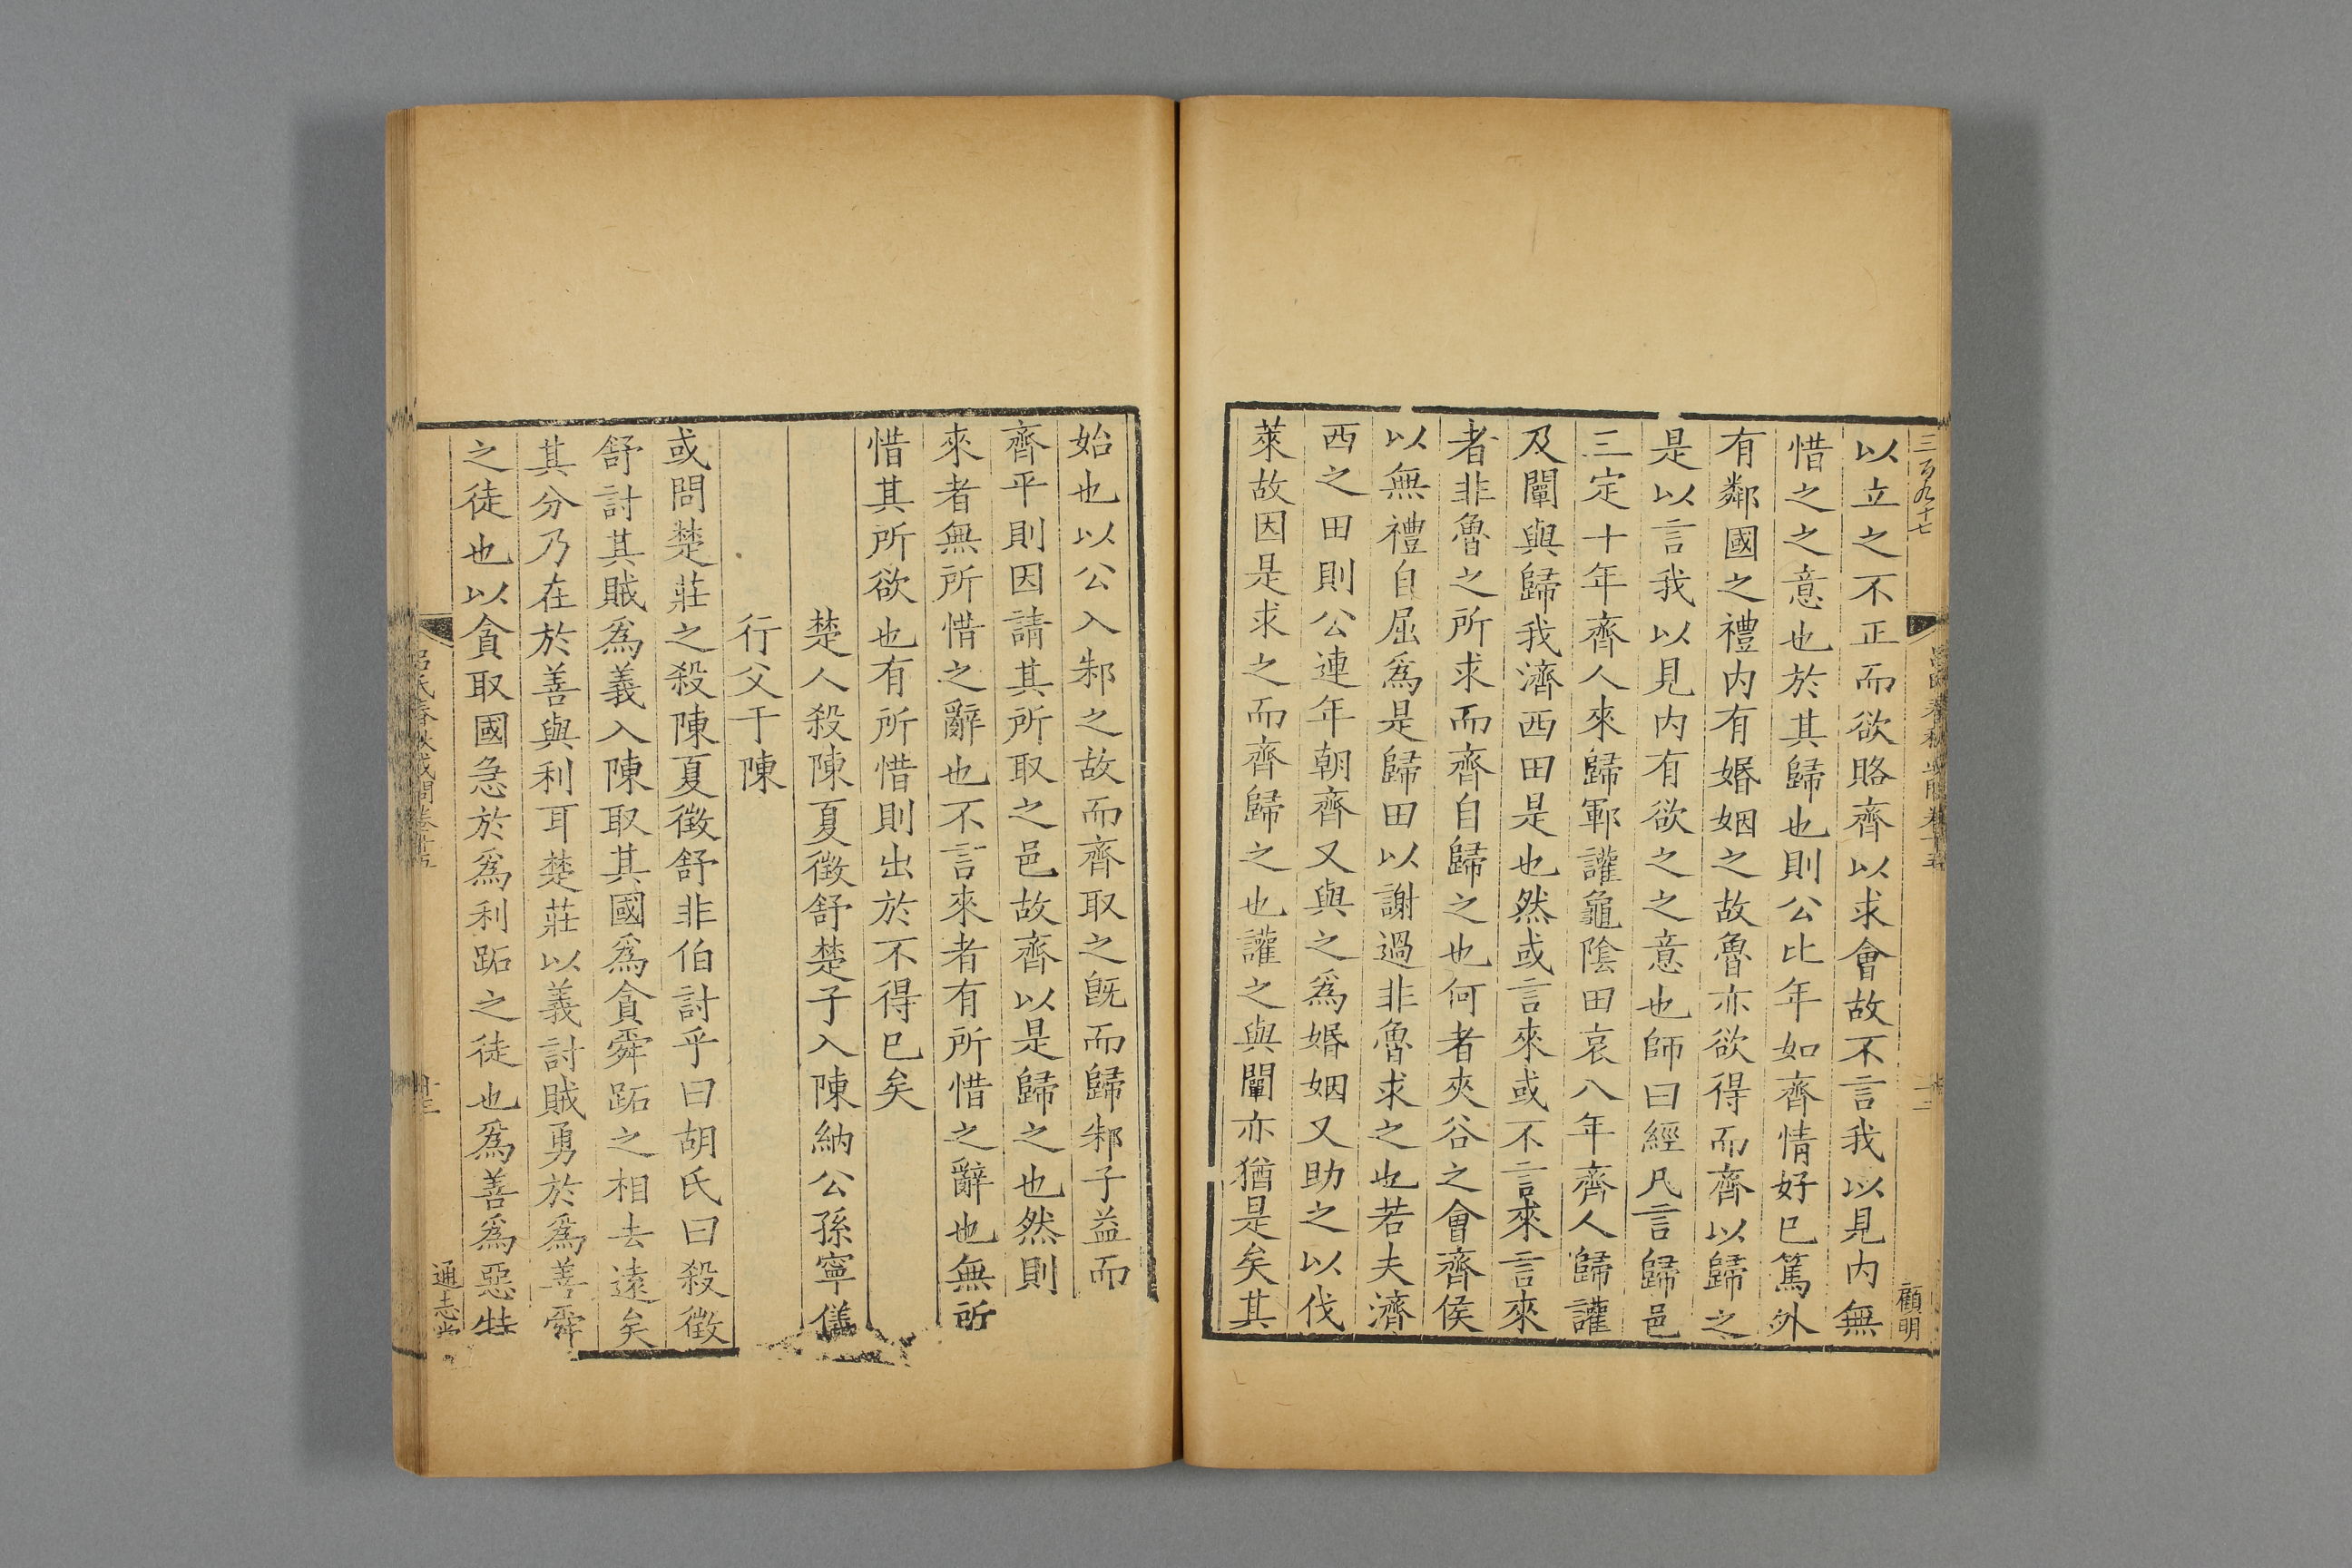 三百九十七
顧明
以立之不正而欲賂齊以求會故不言我以見内無
惜之之意也於其歸也則公比年如齊情好巳篤外
有鄰國之禮内有婚姻之故魯亦欲得而齊以歸之
是以言我以見内有欲之之意也師曰經凡言歸邑
三定十年齊人來歸鄆讙龜陰田哀八年齊人歸讙
及闡與歸我濟西田是也然或言來或不言來言來
者非魯之所求而齊自歸之也何者夾谷之會齊侯
以無禮自屈爲是歸田以謝過非魯求之也若夫濟
西之田則公連年朝齊又與之爲婚姻又助之以伐
萊故因是求之而齊歸之也讙之與闡亦猶是矣其
始也以公入邾之故而齊取之旣而歸邾子益而
齊平則因請其所取之邑故齊以是歸之也然則
來者無所惜之辭也不言來者有所惜之辭也無所
惜其所欲也有所惜則出於不得巳矣
楚人殺陳夏徵舒楚子入陳納公孫寧儀
行父于陳
或問楚莊之殺陳夏徵舒非伯討乎曰胡氏曰殺徵
舒討其賊爲義入陳取其國爲貪舜跖之相去遠矣
其分乃在於善與利耳楚莊以義討賊勇於爲善舜
之徒也以貪取國急於爲利跖之徒也爲善爲惡特
呂氏春秋或問卷十五
通志堂